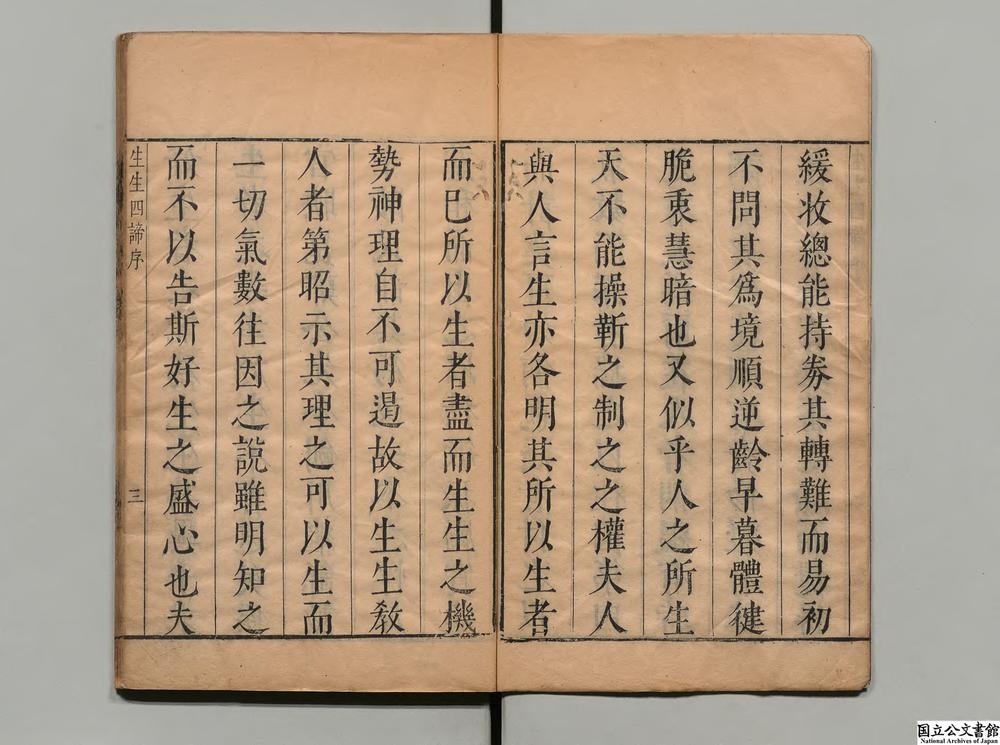 緩收總能持劵其轉難而易初
不問其爲境順逆齡早暮體健
脆衷慧暗也又似乎人之所生
天不能操靳之制之之權夫人
與人言生亦各明其所以生者
而巳所以生者盡而生生之機
勢神理自不可遏故以生生敎
人者第昭示其理之可以生而
一切氣數往因之說雖明知之
而不以告斯好生之盛心也夫
生生四諦序
三
国立公文書館
National Archives of Japan